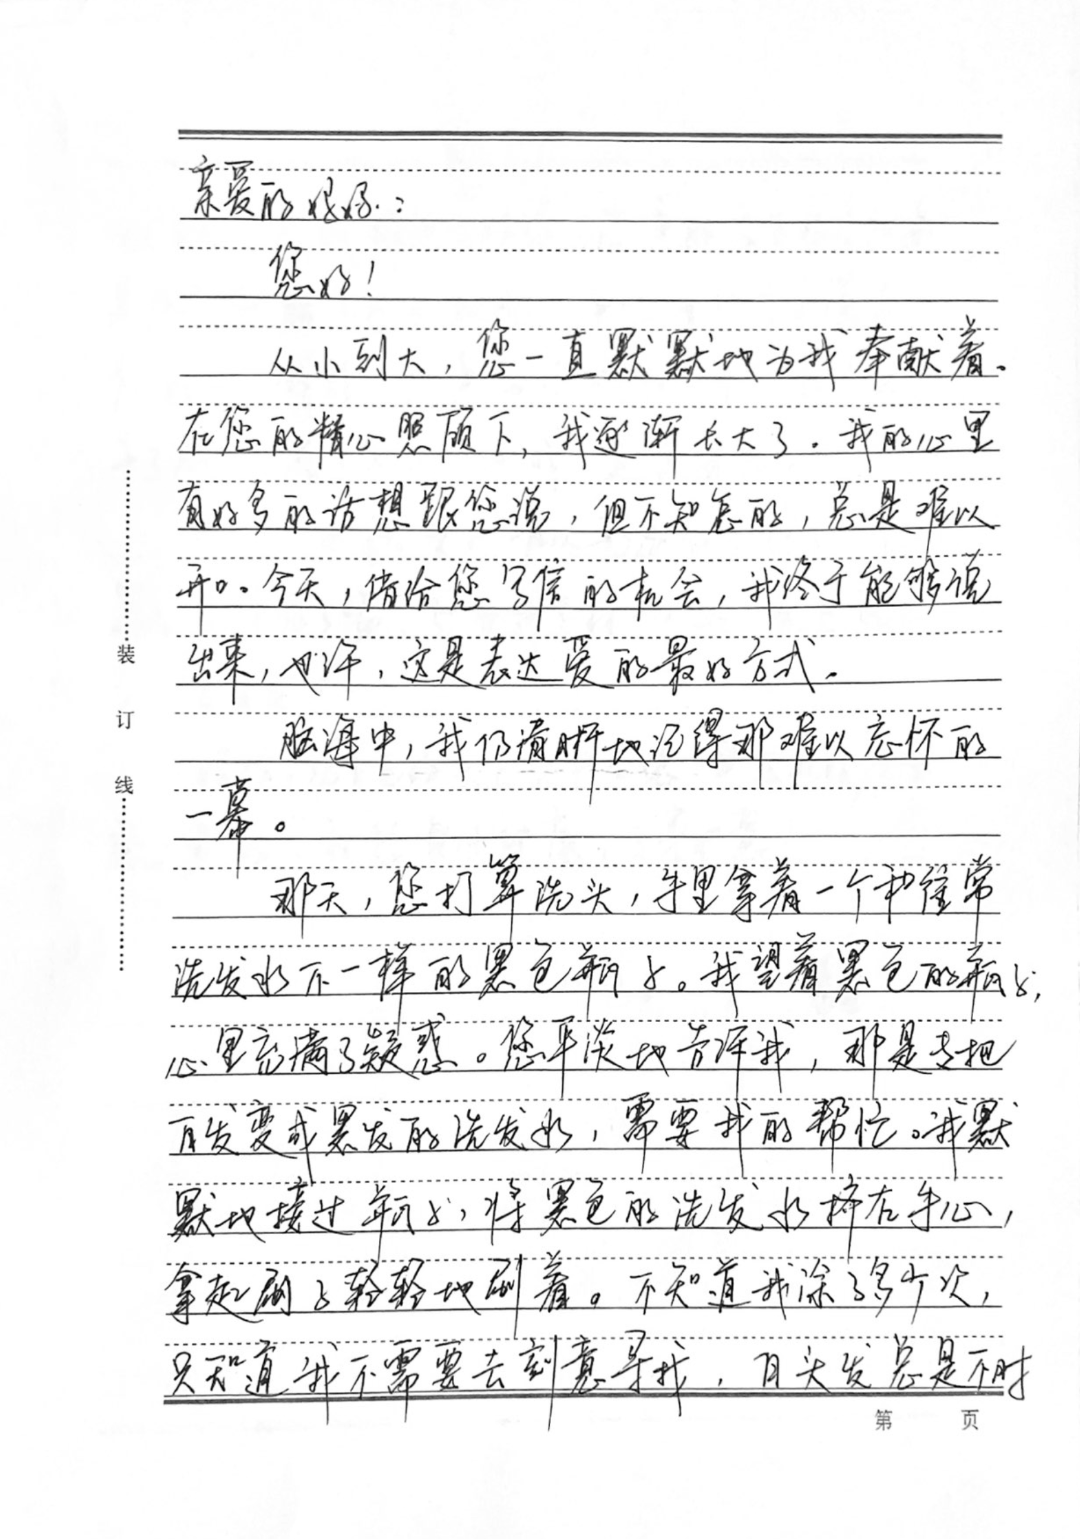 亲爱的妈妈：
您好！
从小到大，您一直默默地为我奉献着。
在您的精心照顾下，我逐渐长大了。我的心里
有好多的话想跟您说，但不知怎的，总是难以
开口。今天，借给您写信的机会，我终于能够说
出来，也许，这是表达爱的最好方式。
脑海中，我仍清晰地记得那难以忘怀的
一幕。
那天，您打算洗头，手里拿着一个和往常
洗发水不一样的黑色瓶子。我望着黑色的瓶子，
心里充满了疑惑。您平淡地告诉我，那是专把
白发变成黑发的洗发水，需要我的帮忙。我默
默地接过瓶子，将黑色的洗发水挤在手心，
拿起刷子轻轻地刷着。不知道我涂了多少次，
只知道我不需要去刻意寻找，白头发总是不时
装
订
线
第 页